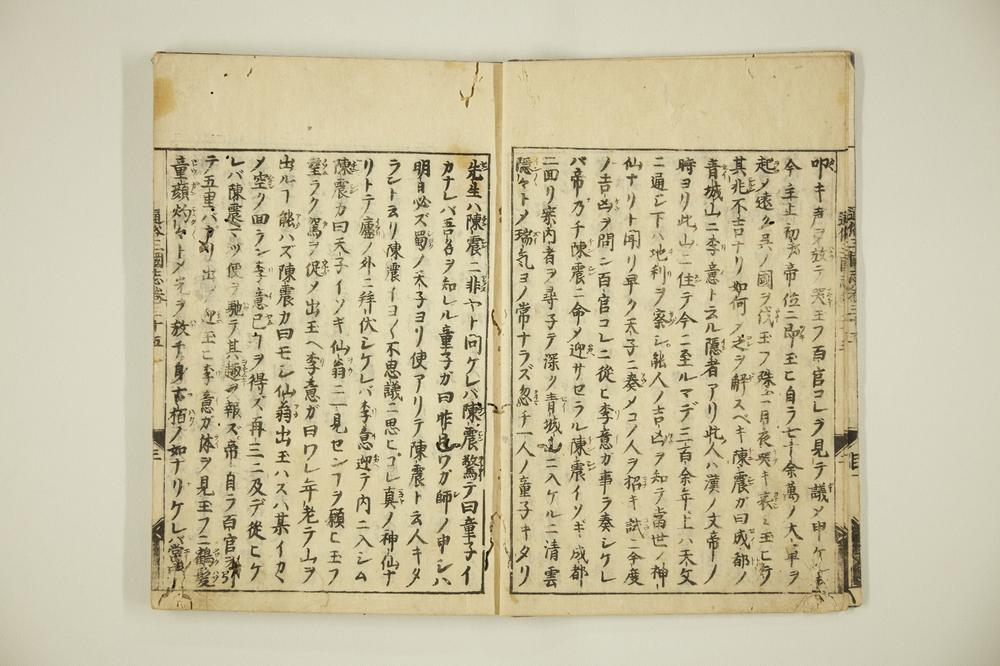 叩キ声ヲ放テ哭玉フ百官コレヲ見テ議メ申ケルハ
今主上初テ帝位ニ即玉ヒ自ラ七十余萬ノ大軍ヲ
起メ遠ク呉ノ國ヲ伐玉フ殊ニ一月夜哭キ哀ミ玉ヒ
其兆不吉ナリ如何メ是ヲ解スベキ陳震ガ曰成都ノ
青城山ニ李意ト云ル隠者アリ此人ハ漢ノ文帝ノ
時ヨリ此山ニ住テ今ニ至ルマデ三百余年上ハ天文
ニ通シ下ハ地利ヲ察シ能人ノ吉凶ヲ知テ當世ノ神
仙ナリト聞リ早ク天子ニ奏メコノ人ヲ招キ試ニ今度
ノ吉凶ヲ問ン百官コレニ從ヒ李意ガ事ヲ奏シケレ
バ帝乃チ陳震ニ命メ迎サセラル陳震イソギ成都
ニ回リ案内者ヲ尋子テ深ク青城山ニ入ケルニ清雲
隠々トメ瑞気ヨノ常ナラズ忽チ一人ノ童子キタリ
先生ハ陳震ニ非ヤト問ケレバ陳震驚テ曰童子イ
カナレバ吾名ヲ知レル童子ガ曰昨日ワガ師ノ申シハ
明日必ズ蜀ノ天子ヨリ使アリテ陳震ト云人キタ
ラント云リ陳震イヨ〱不思議ニ思ヒコレ真ノ神仙ナ
リトテ廬ノ外ニ拜伏シケレバ李意迎テ内ニ入シム
陳震カ曰天子イソギ仙翁ニ見センヿヲ願ヒ玉フ
望ラク駕ヲ促メ出玉ヘ李意ガ曰ワレ年老テ山ヲ
出ルヿ能ハズ陳震カ曰モシ仙翁出玉ハズハ某イカメ
メ空ク回ラン李意已ヿヲ得ズ再三ニ及デ從ヒケ
レバ陳震マヅ使ヲ馳テ其趣ヲ報ズ帝自ラ百官ヲ
テ五里バカリ出迎玉ヒ李意ガ体ヲ見玉フニ鶴髪
童顔灼々トメ光ヲ放チ身古栢ノ如ナリケレバ常
通俗三國志巻三十五
三